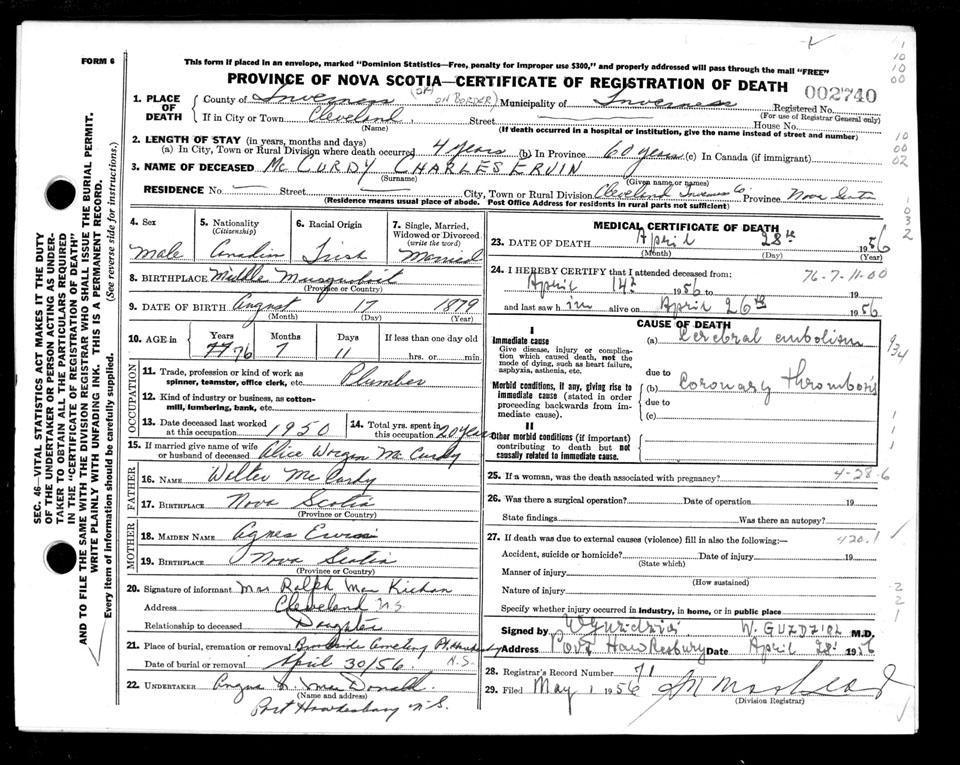 FORM 6
This form if placed in an envelope, marked "Dominion Statistics—Free, penalty for improper use $300," and properly addressed will pass through the mail "FREE"
PROVINCE OF NOVA SCOTIA—CERTIFICATE OF REGISTRATION OF DEATH
002740
1. PLACE OF DEATH County of Inverness (or on BORDER) Municipality of Inverness Registered No.
(For use of Registrar General only)
If in City or Town Cleveland, Street House No.
(Name) (If death occurred in a hospital or institution, give the name instead of street and number)
2. LENGTH OF STAY (in years, months and days)
(a) In City, Town or Rural Division where death occurred 4 years (b) In Province 60 years (c) In Canada (if immigrant)
3. NAME OF DECEASED Mc CURDY CHARLES ERVIN
(Surname) (Given name or names)
RESIDENCE No. — Street — City, Town or Rural Division Cleveland Inverness Co. Province Nova Scotia
(Residence means usual place of abode. Post Office Address for residents in rural parts not sufficient)
4. Sex male
5. Nationality (Citizenship) Canadian
6. Racial Origin Irish
7. Single, Married, Widowed or Divorced (write the word) Married
8. BIRTHPLACE Middle Musquodoboit
(Province or Country)
9. DATE OF BIRTH August 17 1879
(Month) (Day) (Year)
10. AGE in Years 76 Months 7 Days 11 If less than one day old hrs. or min.
OCCUPATION
11. Trade, profession or kind of work as spinner, teamster, office clerk, etc. Plumber
12. Kind of industry or business, as cotton-mill, lumbering, bank, etc.
13. Date deceased last worked at this occupation 1950
14. Total yrs. spent in this occupation 20 years
15. If married give name of wife or husband of deceased Alice Mc Curdy
FATHER
16. NAME Mc Curdy
17. BIRTHPLACE Nova Scotia
(Province or Country)
MOTHER
18. MAIDEN NAME Agnes
19. BIRTHPLACE Nova Scotia
(Province or Country)
20. Signature of informant Mrs Ralph
Address Cleveland N.S.
Relationship to deceased Daughter
21. Place of burial, cremation or removal Cemetery Pt. Hawkesbury N.S.
Date of burial or removal April 30/56
22. UNDERTAKER Angus MacDonald
(Name and address)
Port Hawkesbury N.S.
MEDICAL CERTIFICATE OF DEATH
23. DATE OF DEATH April 28th 1956
(Month) (Day) (Year)
24. I HEREBY CERTIFY that I attended deceased from: 76-7-11-00
April 14th 1956 to 19
and last saw him alive on April 26th 1956
CAUSE OF DEATH
I
Immediate cause
Give disease, injury or complication which caused death, not the mode of dying, such as heart failure, asphyxia, asthenia, etc.
(a) Cerebral embolism
due to
Morbid conditions, if any, giving rise to immediate cause (stated in order proceeding backwards from immediate cause).
(b) Coronary thrombosis
due to
(c)
II
Other morbid conditions (if important) contributing to death but not causally related to immediate cause.
25. If a woman, was the death associated with pregnancy? 4-28-6
26. Was there a surgical operation? Date of operation 19
State findings Was there an autopsy?
27. If death was due to external causes (violence) fill in also the following:— 420.1
Accident, suicide or homicide? Date of injury 19
(State which)
Manner of injury
(How sustained)
Nature of injury
Specify whether injury occurred in industry, in home, or in public place
Signed by W. GUZDZIOL M.D.
Address Port Hawkesbury Date April 28 1956
28. Registrar's Record Number 71
29. Filed May 1 1956
(Division Registrar)
SEC. 46—VITAL STATISTICS ACT MAKES IT THE DUTY
OF THE UNDERTAKER OR PERSON ACTING AS UNDERTAKER TO OBTAIN ALL THE PARTICULARS REQUIRED
IN THE "CERTIFICATE OF REGISTRATION OF DEATH"
AND TO FILE THE SAME WITH THE DIVISION REGISTRAR WHO SHALL ISSUE THE BURIAL PERMIT.
WRITE PLAINLY WITH UNFADING INK. THIS IS A PERMANENT RECORD.
Every item of information should be carefully supplied. (See reverse side for instructions.)